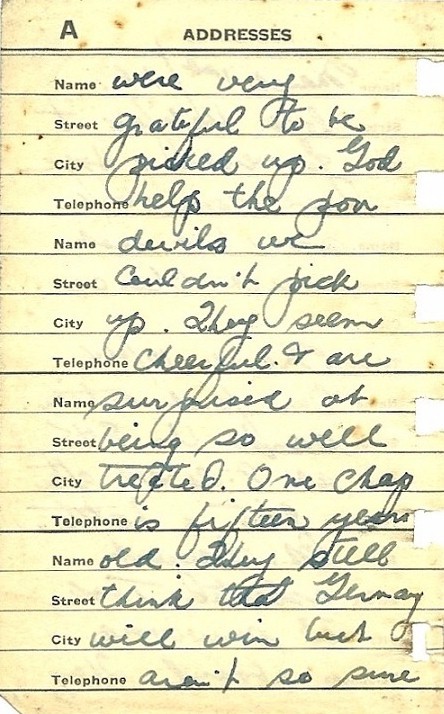 A ADDRESSES
Name were very
Street grateful to be
City picked up. God
Telephone help the poor
Name devils we
Street couldn't pick
City up. They seem
Telephone cheerful. & are
Name surprised at
Street being so well
City treated. One chap
Telephone is fifteen years
Name old. They still
Street think that Germay
City will win but
Telephone aren't so sure